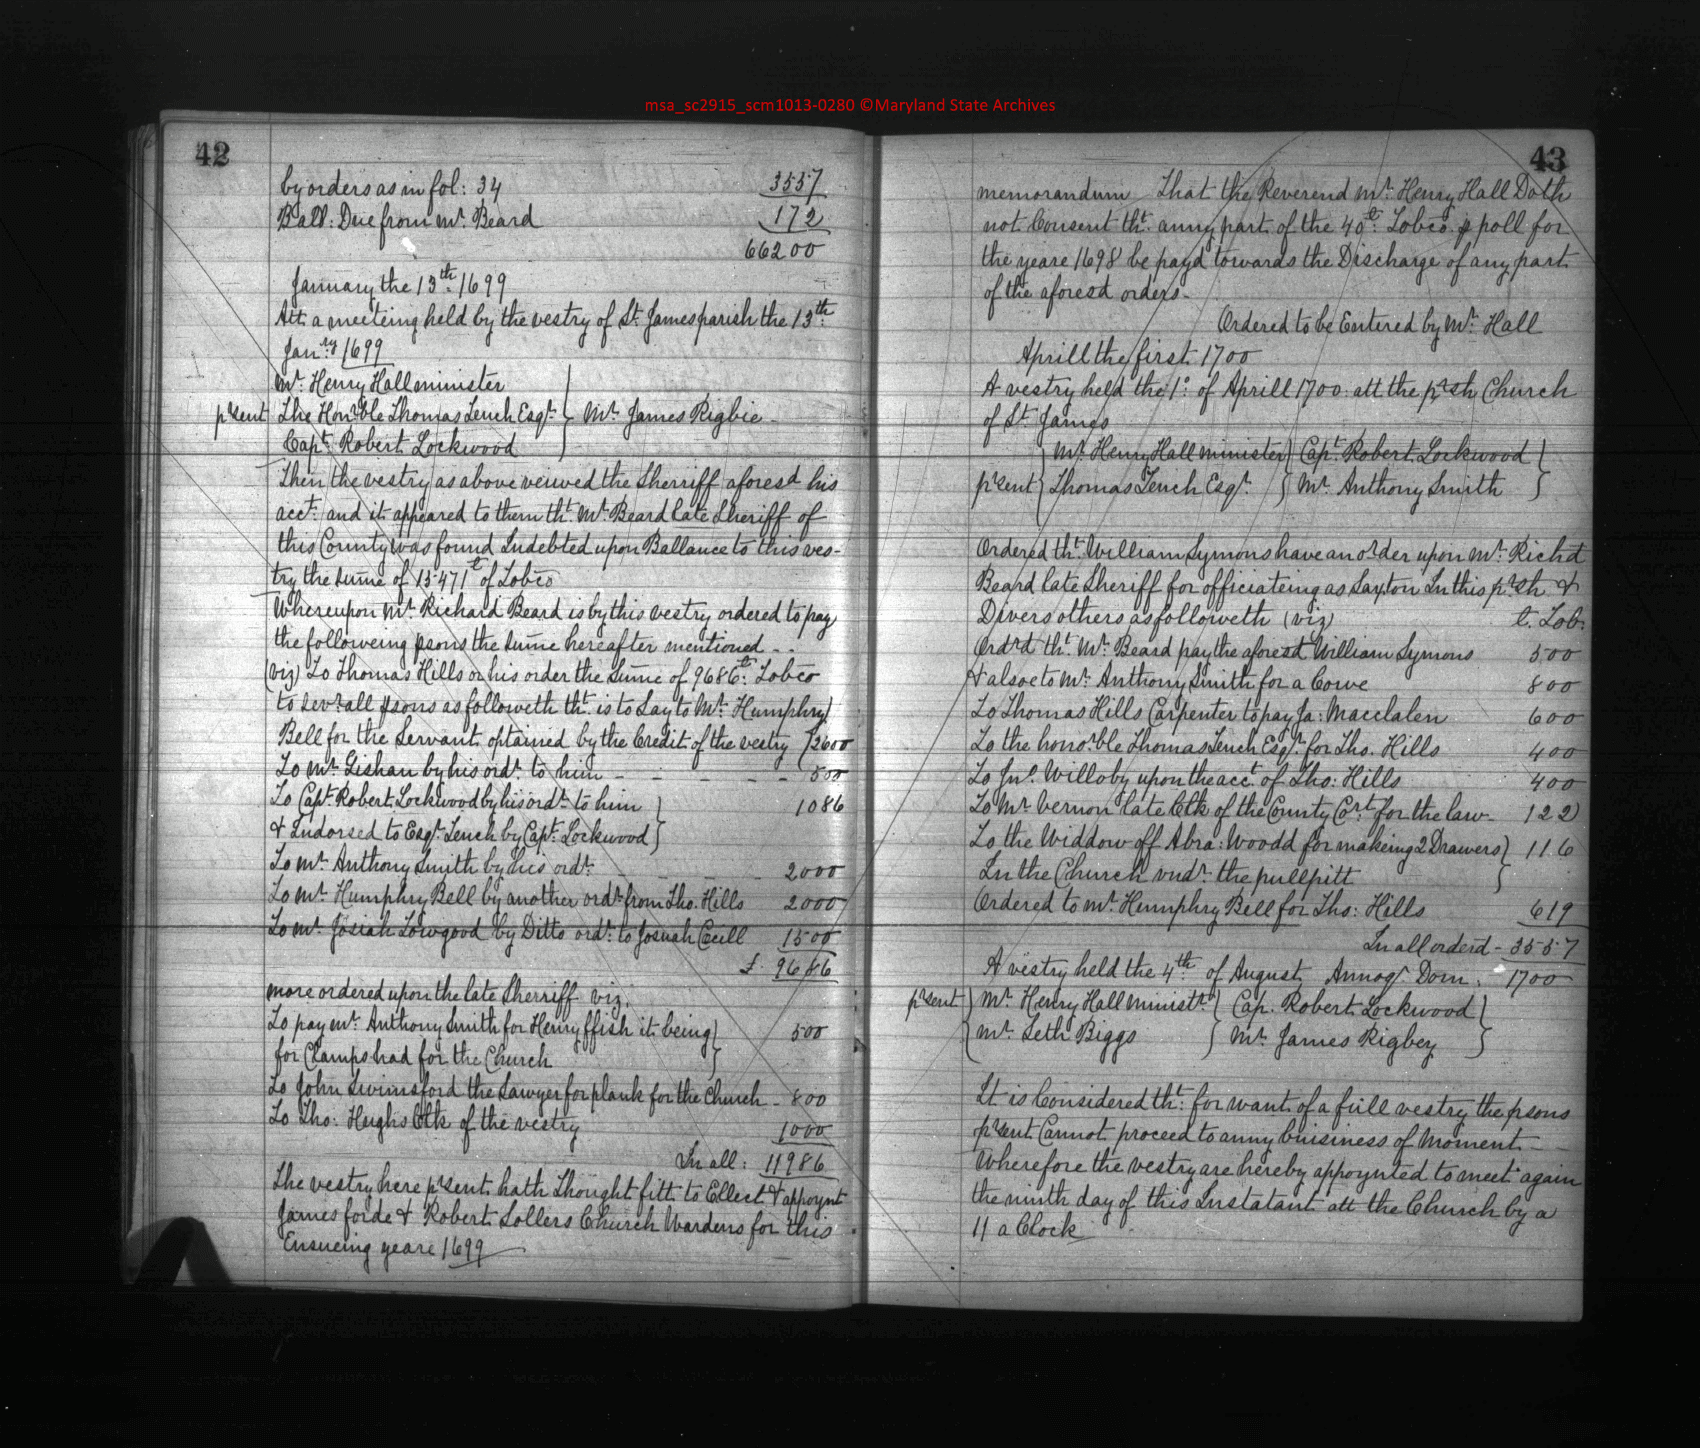 msa_sc2915_scm1013-0280 ©Maryland State Archives
42
by orders as in fol: 34 3557
Ball: Due from Mr. Beard 172
66200
January the 13th 1699
Att a meeteing held by the vestry of St. James parish the 13th
Janry 1699
Mr. Henry Hall minister
prsent The Honrble Thomas Tench Esqr. } Mr. James Rigbie
Capt. Robert Lockwood
Then the vestry as above veiwed the Sherriff aforesd his
acct. and it appeared to them tht. Mr. Beard late Sheriff of
this County was found Indebted upon Ballance to this ves-
try the sume of 15471 t of Tobco
Whereupon Mr. Richard Beard is by this vestry ordered to pay
the followeing psons the sume hereafter mentioned - -
(viz) To Thomas Hills or his order the Sume of 9686 t: Tobco
to sevrall psons as followeth tht. is to Say to Mr. Humphry
Bell for the Servant optained by the Credit of the vestry } 2600
To Mr. Gishan by his ordr. to him - - - - - - 500
To Capt. Robert Lockwood by his ordr. to him } 1086
& Indorsed to Esqr. Tench by Capt. Lockwood }
To Mr. Anthony Smith by his ordr. - - - - 2000
To Mr. Humphry Bell by another ordr. from Tho. Hills 2000
To Mr. Josiah Towgood by Ditto ordr. to Josuah Cecill 1500
£. 9686
more ordered upon the late Sherriff viz.
To pay Mr. Anthony Smith for Henry ffish it being } 500
for Clamps had for the Church }
To John Swinsford the Sawyer for plank for the Church - 800
To Tho: Hughs Clk of the vestry 1000
In all: 11986
The vestry here prsent hath Thought fitt to Ellect & appoynt
James forde & Robert Sollers Church Wardens for this
Ensueing yeare 1699
43
memorandum That the Reverend Mr. Henry Hall Doth
not Consent tht. anny part of the 40 t: Tobco p poll for
the yeare 1698 be payd towards the Discharge of any part
of the aforesd orders-
Ordered to be Entered by Mr. Hall
Aprill the first 1700
A vestry held the 1o: of Aprill 1700 att the prsh Church
of St. James
} Mr. Henry Hall minister } Capt. Robert Lockwood }
prsent } Thomas Tench Esqr. } Mr. Anthony Smith }
Ordered tht. William Symons have an order upon Mr. Richd
Beard late Sheriff for officiateing as Saxton In this prsh &
Divers others as followeth (viz) t. Tob.
Ordrd tht. Mr. Beard pay the aforesd William Symons 500
& alsoe to Mr. Anthony Smith for a Cowe 800
To Thomas Hills Carpenter to pay Ja: Macclalen 600
To the honorble Thomas Tench Esqr. for Tho. Hills 400
To Jno. Willoby upon the acct. of Tho: Hills 400
To Mr. Vernon late Clk of the County Cort. for the law- 122
To the Widdow off Abra: Woodd for makeing 2 Drawers } 116
In the Church undr. the pullpitt }
Ordered to Mr. Humphry Bell for Tho: Hills 619
In all orderd - 3557
A vestry held the 4th of August Annoqr. Dom. 1700
prsent } Mr. Henry Hall Ministr. } Cap. Robert Lockwood }
} Mr. Seth Biggs } Mr. James Rigbey }
It is Considered tht: for want of a full vestry the psons
prsent Cannot proceed to anny buisiness of Moment - -
Wherefore the vestry are hereby appoynted to meet again
the ninth day of this Instatant att the Church by a
11 a Clock